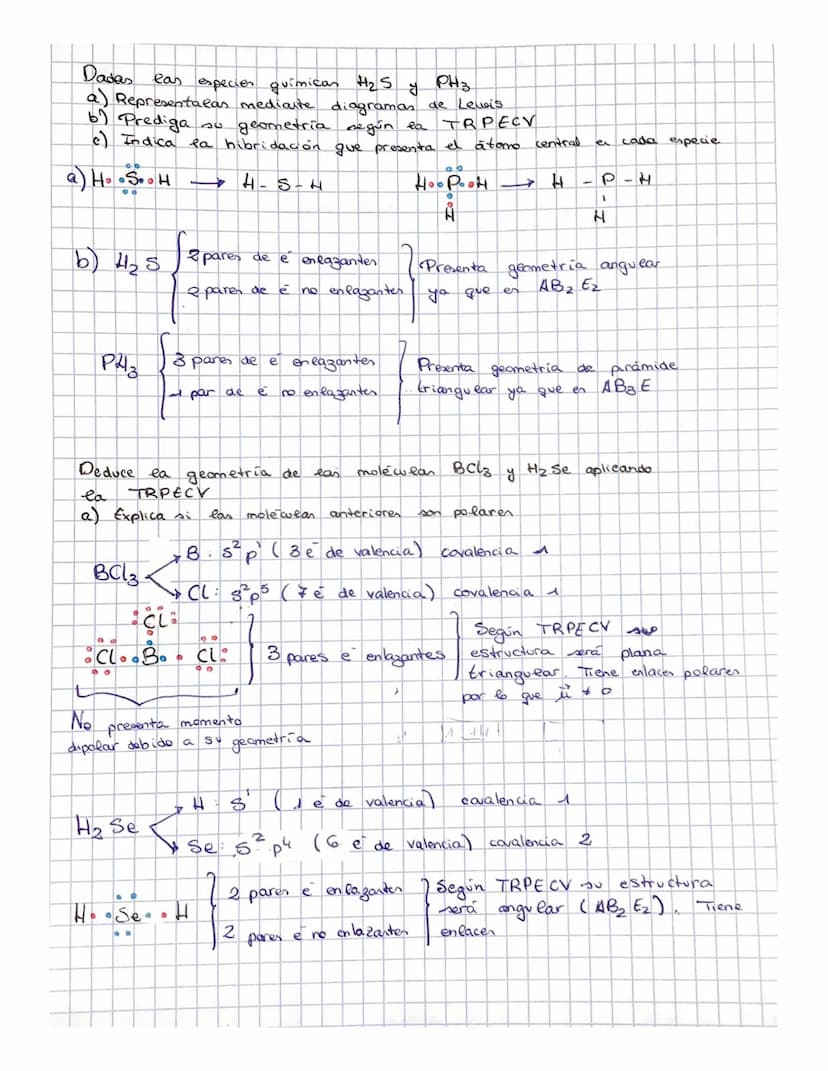 Dadas las especies químicas H2S y PH3
a) Representalas mediante diagramas de Lewis
b) Prediga su geometría según la TRPECV
c) Indica la hibridación que presenta el átomo central en cada especie
a) H S H → H - S - H H P H → H - P - H
H H
b) H2S 2 pares de e⁻ enlazantes Presenta geometría angular
2 pares de e⁻ no enlazantes ya que es AB2E2
PH3 3 pares de e⁻ enlazantes Presenta geometría de pirámide
1 par de e⁻ no enlazantes triangular ya que es AB3E
Deduce la geometría de las moléculas BCl3 y H2Se aplicando
la TRPECV
a) Explica si las moléculas anteriores son polares
BCl3 B: s² p¹ (3 e⁻ de valencia) covalencia 1
Cl: s² p⁵ (7 e⁻ de valencia) covalencia 1
Cl
Cl B Cl 3 pares e⁻ enlazantes
Según TRPECV su
estructura será plana
triangular. Tiene enlaces polares
por lo que μ ≠ 0
No presenta momento
dipolar debido a su geometría
H2Se H: s¹ (1 e⁻ de valencia) covalencia 1
Se: s² p⁴ (6 e⁻ de valencia) covalencia 2
H Se H 2 pares e⁻ enlazantes
2 pares e⁻ no enlazantes
Según TRPECV su estructura
será angular (AB2E2). Tiene
enlaces